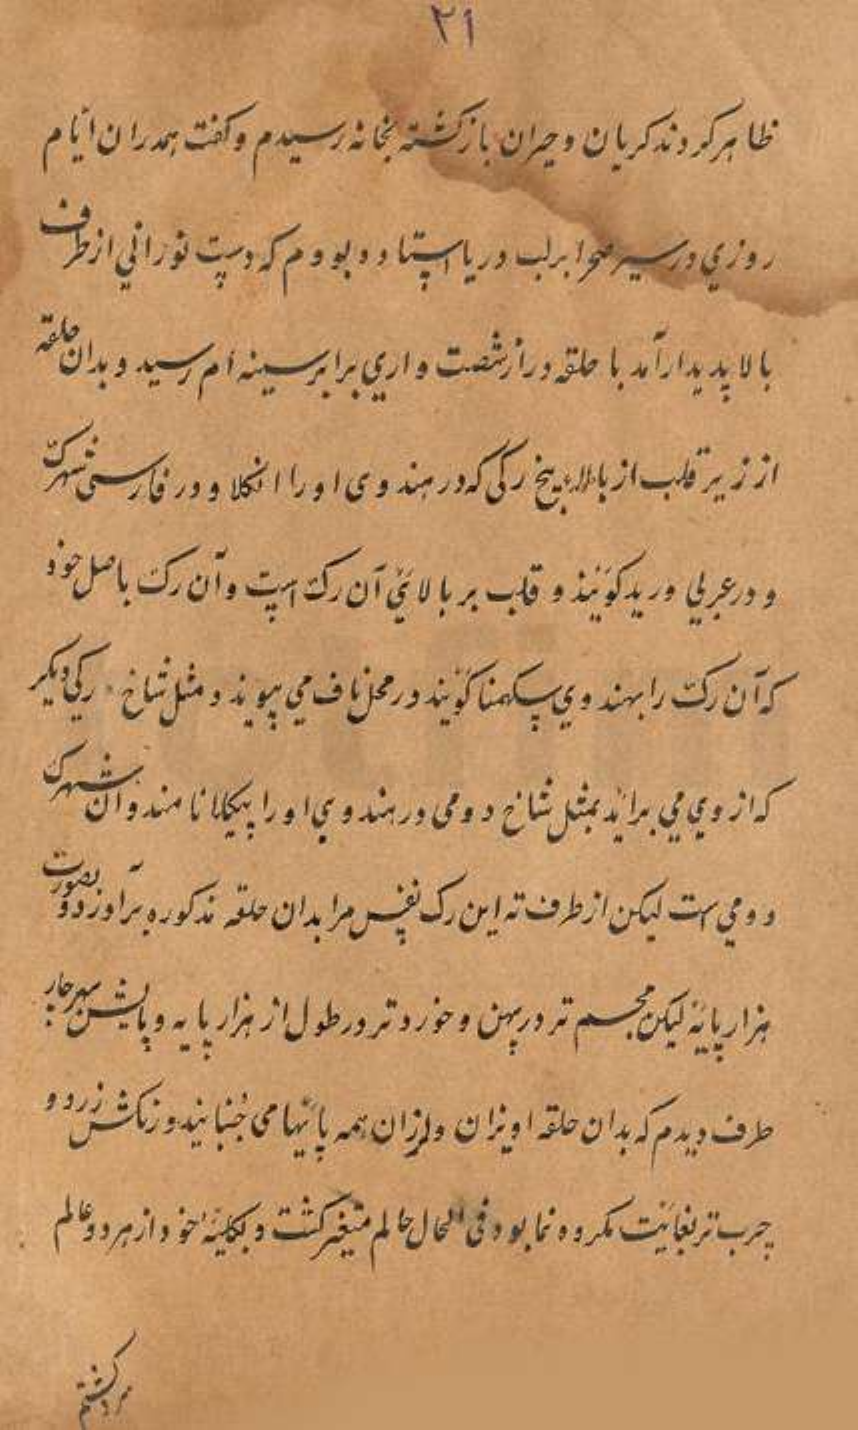 ۲۱
ظاهر کردند کریان و حیران بازکشته بخانه رسیدم و کفت همدران ایام
روزي در سیر صحرا برلب دریا استاده بودم که دست نوراني از طرف
بالا پدیدار آمد با حلقه دراز شصت واري برابر سینه ام رسید و بدان حلقه
از زیر قلب از بالاء بیخ رکی که در هندوی او را انکلا و در فارسی شهرک
و در عربي ورید کویند و قلب بر بالاي آن رک است و آن رک باصل خود
که آن رک را بهندوي سکهمنا کویند در محل ناف مي پیوندد و مثل شاخ رکي دیکر
که از وي مي براید بمثل شاخ دومی در هندوي او را پیکلا نامند و آن شهرک
دومي است لیکن از طرف ته این رک نفس مرا بدان حلقه مذکوره برآورد و بصورت
هزار پایه لیکن مجسم تر در پهن و خورد تر در طول از هزار پایه و پایش بهر چار
طرف دیدم که بدان حلقه اویزان و لرزان همه پائیها می جُنبانید و رنکش زرد و
چرب تر بغائیت مکروه نما بود فی الحال حالم متغیر کشت و بکلیّه خود از هر دو عالم
سرد کشتم